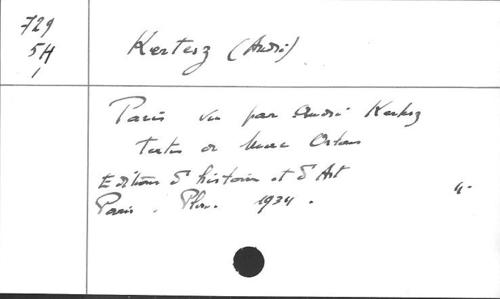 729
5H
1
Kertesz (André)
Paris vu par André Kertesz
Textes de Marc Orlan
Editions d'histoire et d'Art
Paris. Plon. 1934.